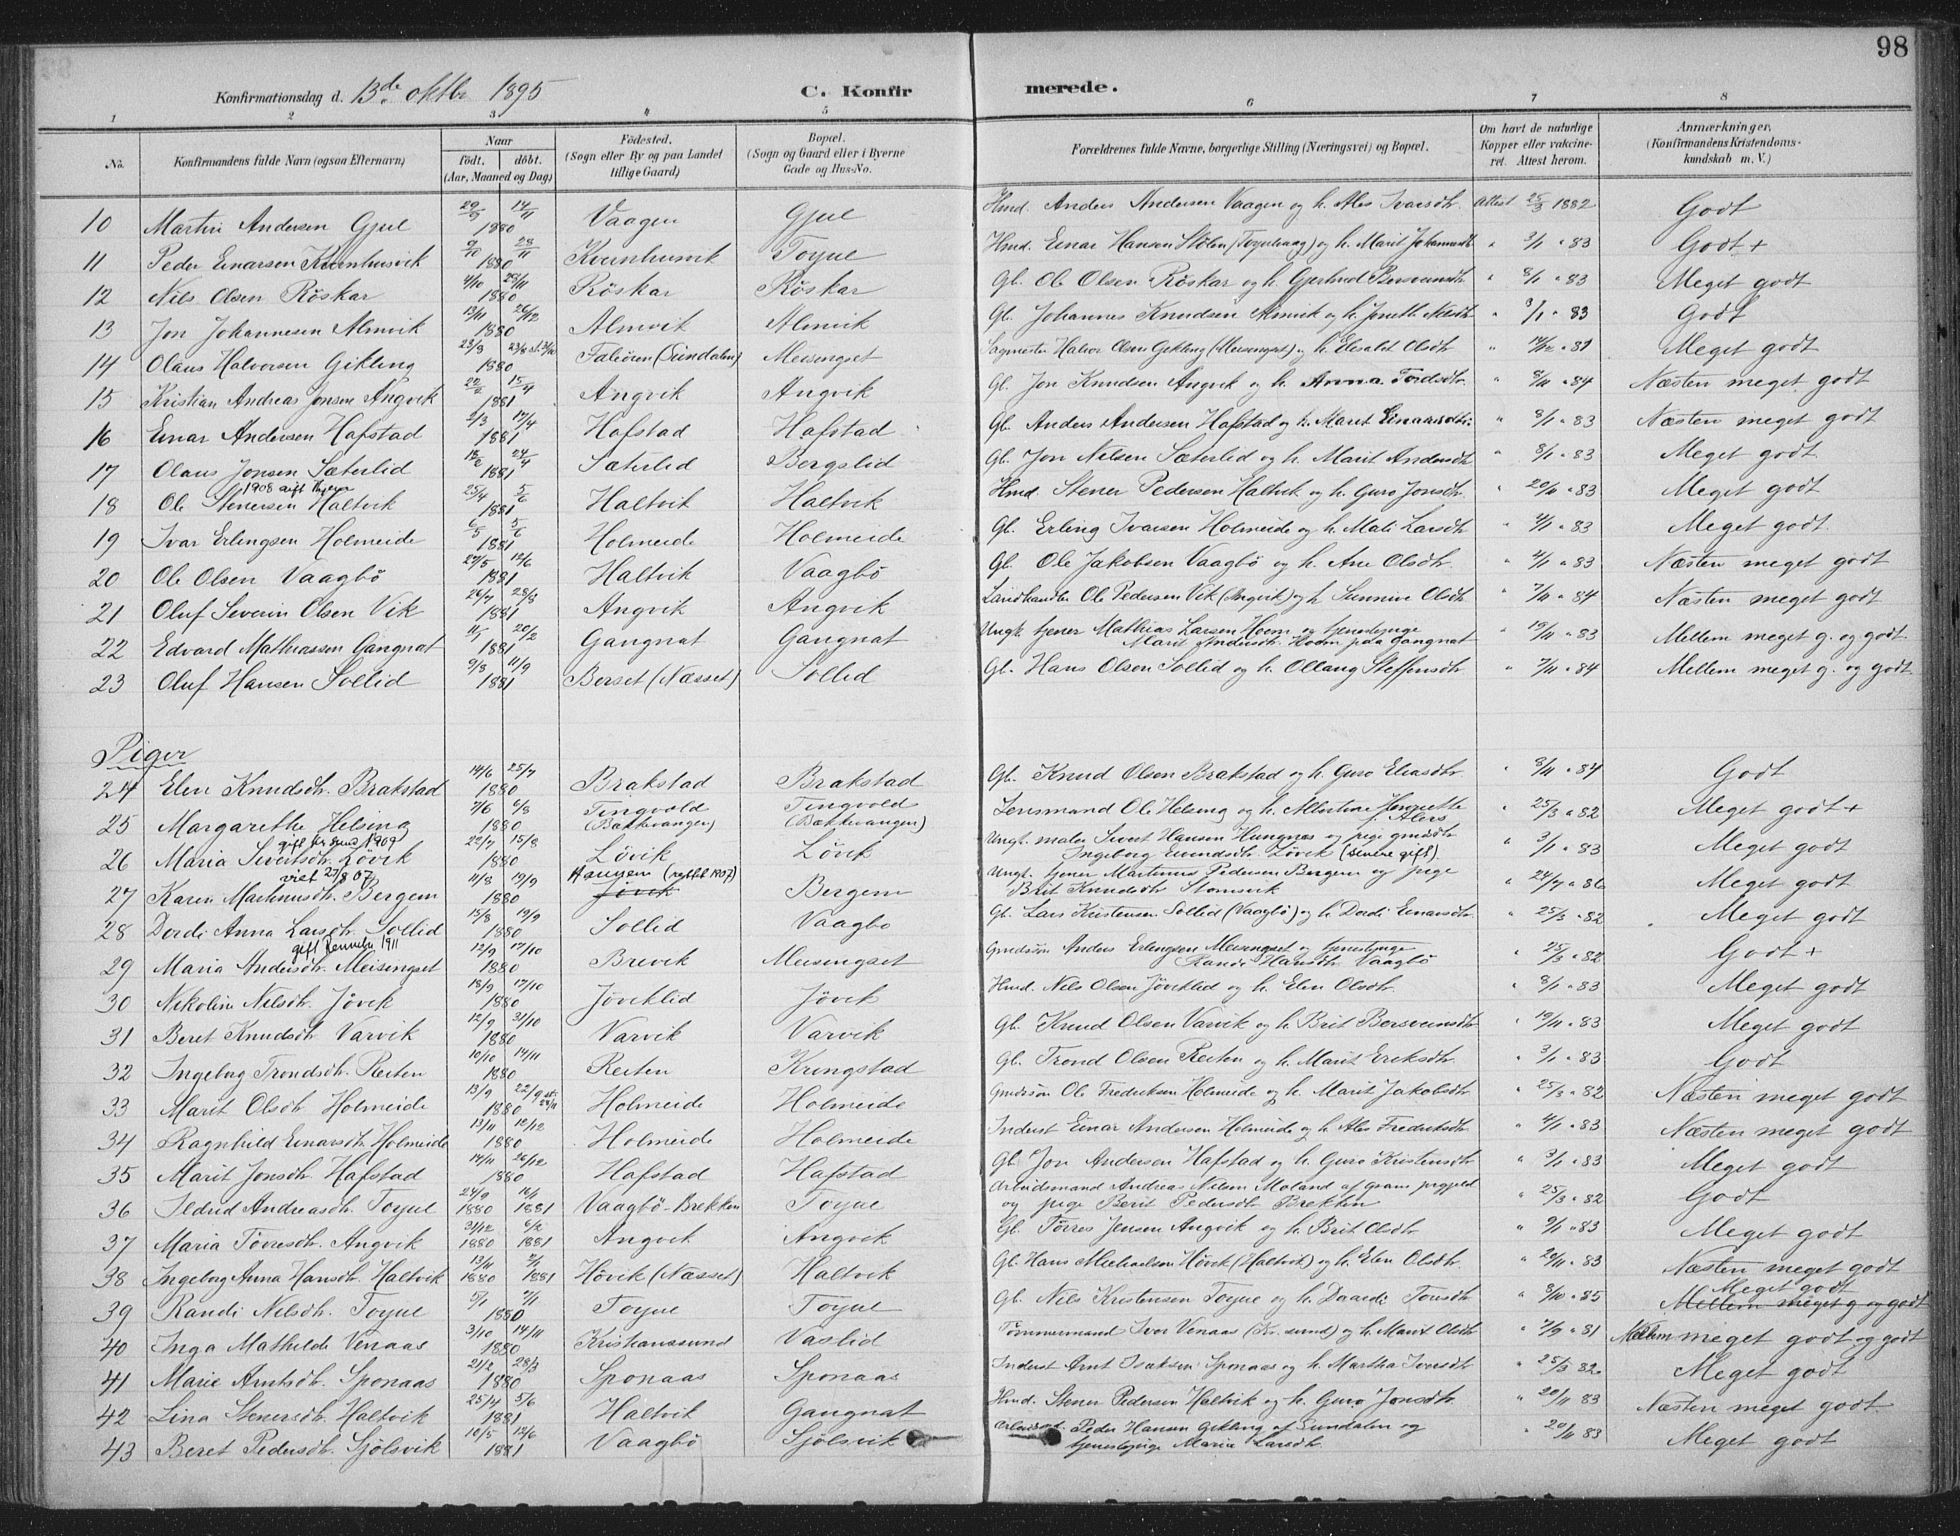 98
Konfirmationsdag d. 13de oktbr 1895 C. Konfirmerede.
1 2 3 4 5 6 7 8
No. Konfirmandens fulde Navn (ogsaa Efternavn) Naar födt. döbt. (Aar, Maaned og Dag) Födested. (Sogn eller By og paa Landet tillige Gaard) Bopæl. (Sogn og Gaard eller i Byerne Gade og Hus-No. Forældrenes fulde Navne, borgerlige Stilling (Næringsvei) og Bopæl. Om havt de naturlige Kopper eller vakcineret. Attest herom. Anmærkninger. (Konfirmandens Kristendomskundskab m. V.)
10 Martin Andersen Gjul 1880 14/11 Vaagen Gjul Hmd. Anders Andersen Vaagen og h. Ales Ivarsdtr. Attest 25/3 1882 Godt
11 Peder Einarsen Kvenhusvik 1880 28/11 Kvenhusvik Torjul Hmd. Einar Hansen Stölen og h. Marit Johannesdtr " 3/1 " 83 Godt +
12 Nils Olsen Röskar 4/10 28/11 1880 Röskar Röskar Gb. Ole Olsen Röskar og h. Gjertrud Bersvendsdtr " 8/1 " 83 Meget godt
13 Jon Johannesen Almvik 13/11 26/12 1880 Almvik Almvik Gb. Johannes Knudsen Almvik og h. " 3/1 " 83 Godt
14 Olaus Halvorsen Gikling 1880 (Sundalen) Meisingset Sagmester Halvor Olsen Gikling (Meisingset) og h. Elisabet Olsdtr " 81 Meget godt
15 Kristian Andreas Jonsen Angvik 15/4 1881 Angvik Angvik Gb. Jon Knudsen Angvik og h. Anna Tordsdtr. " 8/11 " 84 Næsten meget godt
16 Einar Andersen Hafstad 2/3 17/4 1881 Hafstad Hafstad Gb. Anders Andersen Hafstad og h. Maret Einarsdtr. " 8/1 " 83 Næsten meget godt
17 Olaus Jonsen Sæterlid 24/4 1881 Sæterlid Bergslid Gb. Jon Nilsen Sæterlid og h. Marit Andersdtr " 8/1 " 83 Meget godt
18 Ole Stenersen Haltvik 1908 gift 25/4 5/6 1881 Haltvik Haltvik Hmd. Stener Pedersen Haltvik og h. Guro Jonsdtr. " 20/11 " 83 Meget godt
19 Ivar Erlingsen Holmeide 6/5 5/6 1881 Holmeide Holmeide Gb. Erling Ivarsen Holmeide og h. Mali Larsdtr " 4/1 " 83 Meget godt.
20 Ole Olsen Vaagbö 27/5 12/6 1881 Haltvik Vaagbö Gb. Ole Jakobsen Vaagbö og h. Ane Olsdtr. " 4/1 " 83 Næsten meget godt
21 Oluf Severin Olsen Vik 26/7 28/8 1881 Angvik Angvik Landhandler Ole Pedersen Vik (Angvik) og h. Sunnive Olsdtr " 7/11 " 84 Næsten meget godt
22 Edvard Mathiassen Gangnat 20/2 1881 Gangnat Gangnat Ungk. tjener Mathias Larsen Hoem og tjenestepige Marit Andersdtr. Hoem paa Gangnat " 19/11 " 83 Mellem meget g. og godt.
23 Oluf Hansen Sollid 9/8 11/9 1881 Berset (Næsset) Sollid Gb. Hans Olsen Sollid og h. Ollaug Steffensdtr " 7/11 " 84 Mellem meget g. og godt
Piger
24 Elen Knudsdtr. Brakstad 14/6 25/7 1880 Brakstad Brakstad Gb. Knud Olsen Brakstad og h. Guro Eliasdtr " 8/11 " 84 Godt
25 Margarethe Helsing 7/6 6/8 1880 Tingvold (Bakkevangen) Tingvold (Bakkevangen) Lensmand Ole Helsing og h. Albertine Henriette f. Alers " 25/3 " 82 Meget godt +
26 Maria Sivertsdtr. Lövik gift 1909 22/7 15/8 1880 Lövik Lövik Ungk. maler Sivert Hansen Hungnæs og pige gmdsdtr Ingeborg Lövik (senere gift) " 3/1 " 83 Meget godt
27 Karen Martinusdtr. Bergem viet 27/8 07 11/8 19/9 1880 Haugen (rettet 1907) Jövik Bergem Ungk. tjener Martinus Pedersen Bergem og pige Brit Knudsdtr " 24/7 " 86 Meget godt
28 Dordi Anna Larsdtr. Sollid 15/8 19/9 1880 Sollid Vaagbö Gb. Lars Kristensen Sollid (Vaagbö) og h. Dordi Einarsdtr. " 25/3 " 82 Meget godt
29 Maria Andersdtr. Meisingset gift 1911 12/9 17/10 1880 Brevik Meisingset Gmdssön Anders Erlingsen Meisingset og tjenestepige Randi Hansdtr. Vaagbö " 25/3 " 82 Godt +
30 Nikoline Nilsdtr. Jövik 18/9 17/10 1880 Jöviklid Jövik Hmd. Nils Olsen Jöviklid og h. Elen Olsdtr. " 8/1 " 83 Meget godt
31 Beret Knudsdtr. Varvik 12/9 31/10 1880 Varvik Varvik Gb. Knud Olsen Varvik og h. Brit Bersvendsdtr " 19/11 " 83 Meget godt
32 Ingeborg Trondsdtr. Reiten 10/10 14/11 1880 Reiten Kringstad Gb. Trond Olsen Reiten og h. Marit Eriksdtr. " 3/1 " 83 Godt
33 Maret Olsdtr. Holmeide 13/9 22/9 1880 Holmeide Holmeide Gmdssön Ole Frederiksen Holmeide og h. Marit Jakobsdtr " 25/3 " 82 Næsten meget godt
34 Ragnhild Einarsdtr. Holmeide 13/11 12/12 1880 Holmeide Holmeide Inderst Einar Andersen Holmeide og h. Ales Frederiksdtr " 4/1 " 83 Næsten meget godt
35 Marit Jonsdtr. Hafstad 14/11 26/12 1880 Hafstad Hafstad Gb. Jon Andersen Hafstad og h. Guro Kristensdtr " 3/1 " 83 Meget godt
36 Ildrid Andreasdtr. Torjul 24/9 1880 1881 Vaagbö-Brekken Torjul Arbeidsmand Andreas Nilsen Moland af Gram prgjeld og pige Berit Pedersdtr. Brekken " 25/3 " 82 Godt
37 Maria Törresdtr. Angvik 31/12 6/2 1880 1881 Angvik Angvik Gb. Törres Jensen Angvik og h. Brit Olsdtr. " 9/1 " 83 Meget godt
38 Ingeborg Anna Hansdtr. Haltvik 13/11 1880 1881 Hövik (Næsset) Haltvik Gb. Hans Michaelsen Hövik (Haltvik) og h. Elen Olsdtr. " 20/11 " 83 Næsten meget godt
39 Randi Nilsdtr. Torjul 1880 Torjul Torjul Gb. Nils Kristensen Torjul og h. Daardi Tordsdtr " 8/10 " 85 Meget godt Mellem meget g og godt
40 Inga Mathilde Venaas 3/10 14/11 1880 Kristianssund Vaslid Tömmermand Iver Venaas (Kr.sund) og h. Marit Olsdtr " 7/9 " 81 meget godt og godt
41 Marie Arntsdtr. Sponaas 21/2 28/3 1880 Sponaas Sponaas Inderst Arnt Isaksen Sponaas og h. Martha Iversdtr " 25/3 82 Meget godt
42 Lina Stenersdtr. Haltvik 25/4 5/6 1881 Haltvik Gangnat Hmd. Stener Pedersen Haltvik og h. Guro Jonsdtr " 20/11 83 Næsten meget godt
43 Beret Pedersdtr. Sjölsvik 10/5 12/6 1881 Vaagbö Sjölsvik Peder Hansen Gikling af Sundalen og tjenestepige Maria Larsdtr " 20/11 83 Meget godt